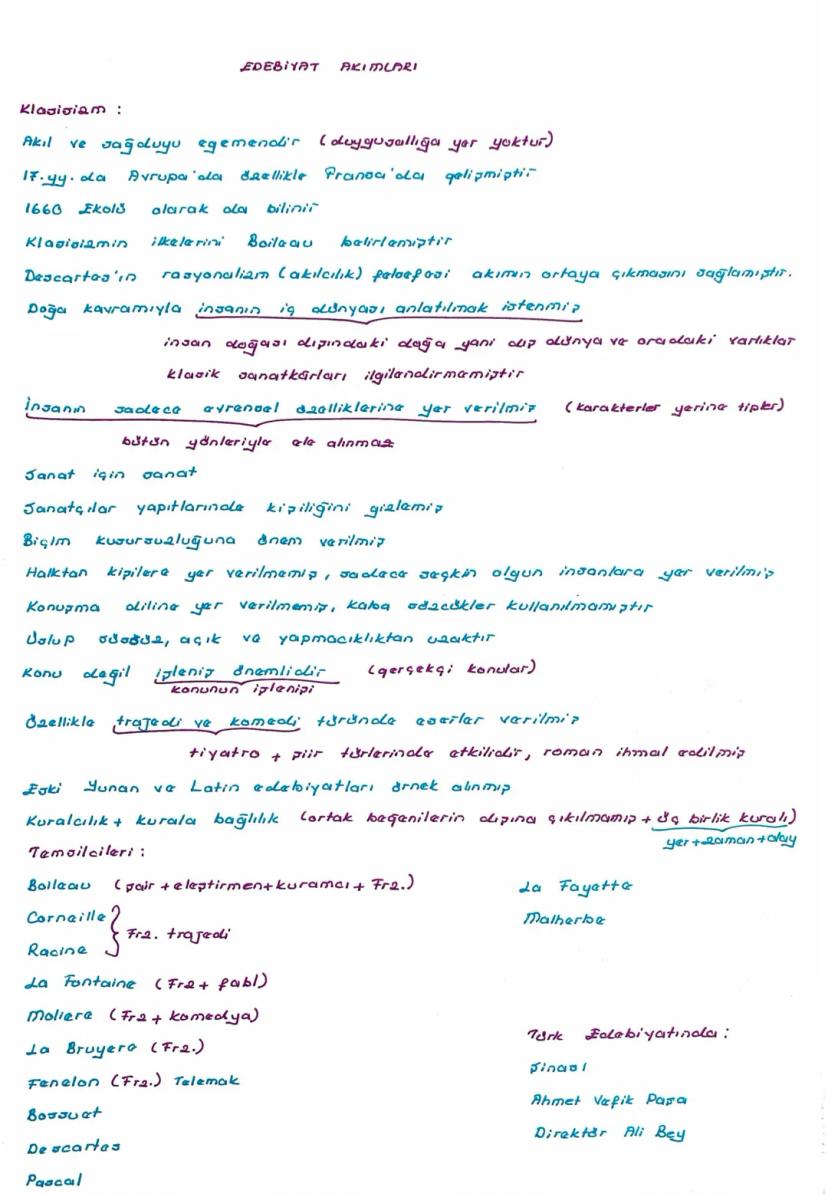 EDEBİYAT AKIMLARI
Klasisizm :
Akıl ve sağduyu egemendir (duygusallığa yer yoktur)
17.yy.da Avrupa'da özellikle Fransa'da gelişmiştir
1660 Ekolü olarak da bilinir
Klasisizmin ilkelerini Boileau belirlemiştir
Descartes'ın rasyonalizm (akılcılık) felsefesi akımın ortaya çıkmasını sağlamıştır.
Doğa kavramıyla insanın iç dünyası anlatılmak istenmiş
insan doğası dışındaki doğa yani dış dünya ve oradaki varlıklar
klasik sanatkârları ilgilendirmemiştir
İnsanın sadece evrensel özelliklerine yer verilmiş (karakterler yerine tipler)
bütün yönleriyle ele alınmaz
Sanat için sanat
Sanatçılar yapıtlarında kişiliğini gizlemiş
Biçim kusursuzluğuna önem verilmiş
Halktan kişilere yer verilmemiş, sadece seçkin olgun insanlara yer verilmiş
Konuşma diline yer verilmemiş, kaba sözcükler kullanılmamıştır
Üslup sössüz, açık ve yapmacıklıktan uzaktır
Konu değil işleniş önemlidir (gerçekçi konular)
konunun işlenişi
Özellikle trajedi ve komedi türünde eserler verilmiş
tiyatro + şiir türlerinde etkilidir, roman ihmal edilmiş
Eski Yunan ve Latin edebiyatları örnek alınmış
Kuralcılık + kurala bağlılık (ortak beğenilerin dışına çıkılmamış + üç birlik kuralı)
yer+zaman+olay
Temsilcileri :
Boileau (şair + eleştirmen + kuramcı + Frz.)
La Fayette
Corneille
Malherbe
Frz. trajedi
Racine
La Fontaine (Frz + fabl)
Moliere (Frz + komedya)
Türk Edebiyatında :
La Bruyere (Frz.)
Şinasi
Fenelon (Frz.) Telemak
Ahmet Vefik Paşa
Bossuet
Direktör Ali Bey
Descartes
Pascal